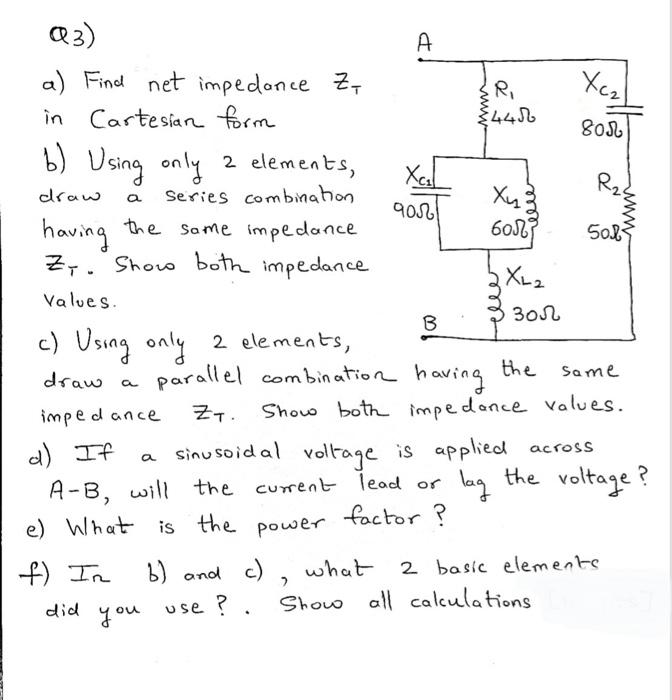 Q3)
a) Find net impedance Z_T
in Cartesian form
b) Using only 2 elements,
draw a series combination
having the same impedance
Z_T. Show both impedance
values.
c) Using only 2 elements,
draw a parallel combination having the same
impedance Z_T. Show both impedance values.
d) If a sinusoidal voltage is applied across
A-B, will the current lead or lag the voltage?
e) What is the power factor?
f) In b) and c), what 2 basic elements
did you use?. Show all calculations
A
R₁
44Ω
X_C₂
80Ω
X_C₁
90Ω
X_L₁
60Ω
R₂
50Ω
X_L₂
30Ω
B